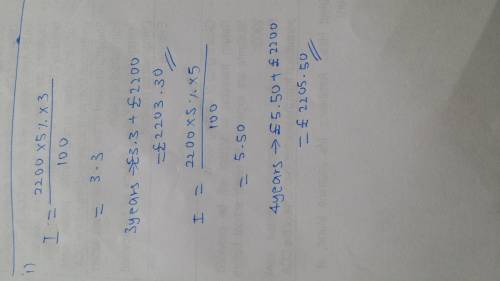 i)
I = 2200 x 5% x 3
100
= 3.3
3years → £3.3 + £2200
= £2203.30
I = 2200 x 5% x 5
100
= 5.50
4years → £5.50 + £2200
= £2205.50